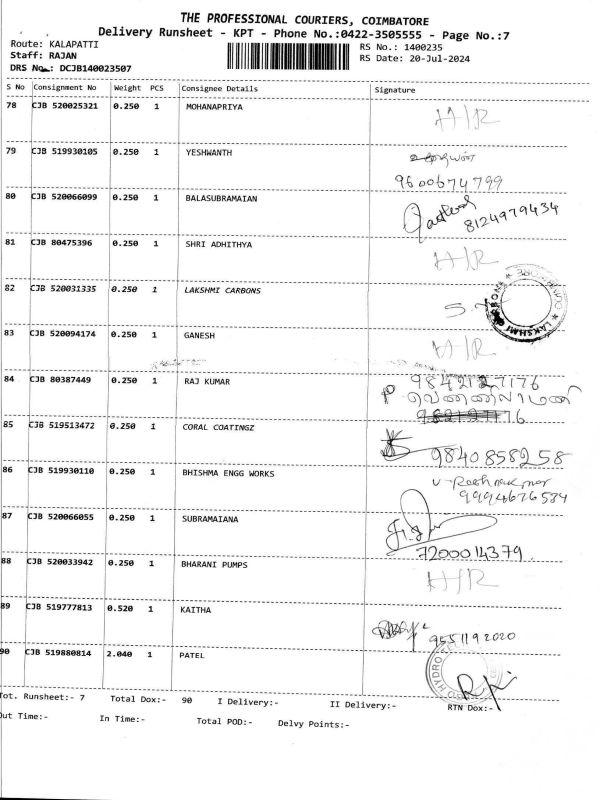 THE PROFESSIONAL COURIERS, COIMBATORE
Delivery Runsheet - KPT - Phone No.:0422-3505555 - Page No.:7
Route: KALAPATTI RS No.: 1400235
Staff: RAJAN RS Date: 20-Jul-2024
DRS No.: DCJB140023507
S No Consignment No Weight PCS Consignee Details Signature
78 CJB 520025321 0.250 1 MOHANAPRIYA H/R
79 CJB 519930105 0.250 1 YESHWANTH
9600674799
80 CJB 520066099 0.250 1 BALASUBRAMAIAN
8124979434
81 CJB 80475396 0.250 1 SHRI ADHITHYA H/R
82 CJB 520031335 0.250 1 LAKSHMI CARBONS
LAKSHMI CARBONS * COIMBATORE *
83 CJB 520094174 0.250 1 GANESH H/R
84 CJB 80387449 0.250 1 RAJ KUMAR P 9842127176
85 CJB 519513472 0.250 1 CORAL COATINGZ
9840858258
86 CJB 519930110 0.250 1 BHISHMA ENGG WORKS
9994676584
87 CJB 520066055 0.250 1 SUBRAMAIANA
7200014379
88 CJB 520033942 0.250 1 BHARANI PUMPS H/R
89 CJB 519777813 0.520 1 KAITHA
9551192020
90 CJB 519880814 2.040 1 PATEL
HYDRO
Tot. Runsheet:- 7 Total Dox:- 90 I Delivery:- II Delivery:- RTN Dox:-
Out Time:- In Time:- Total POD:- Delvy Points:-